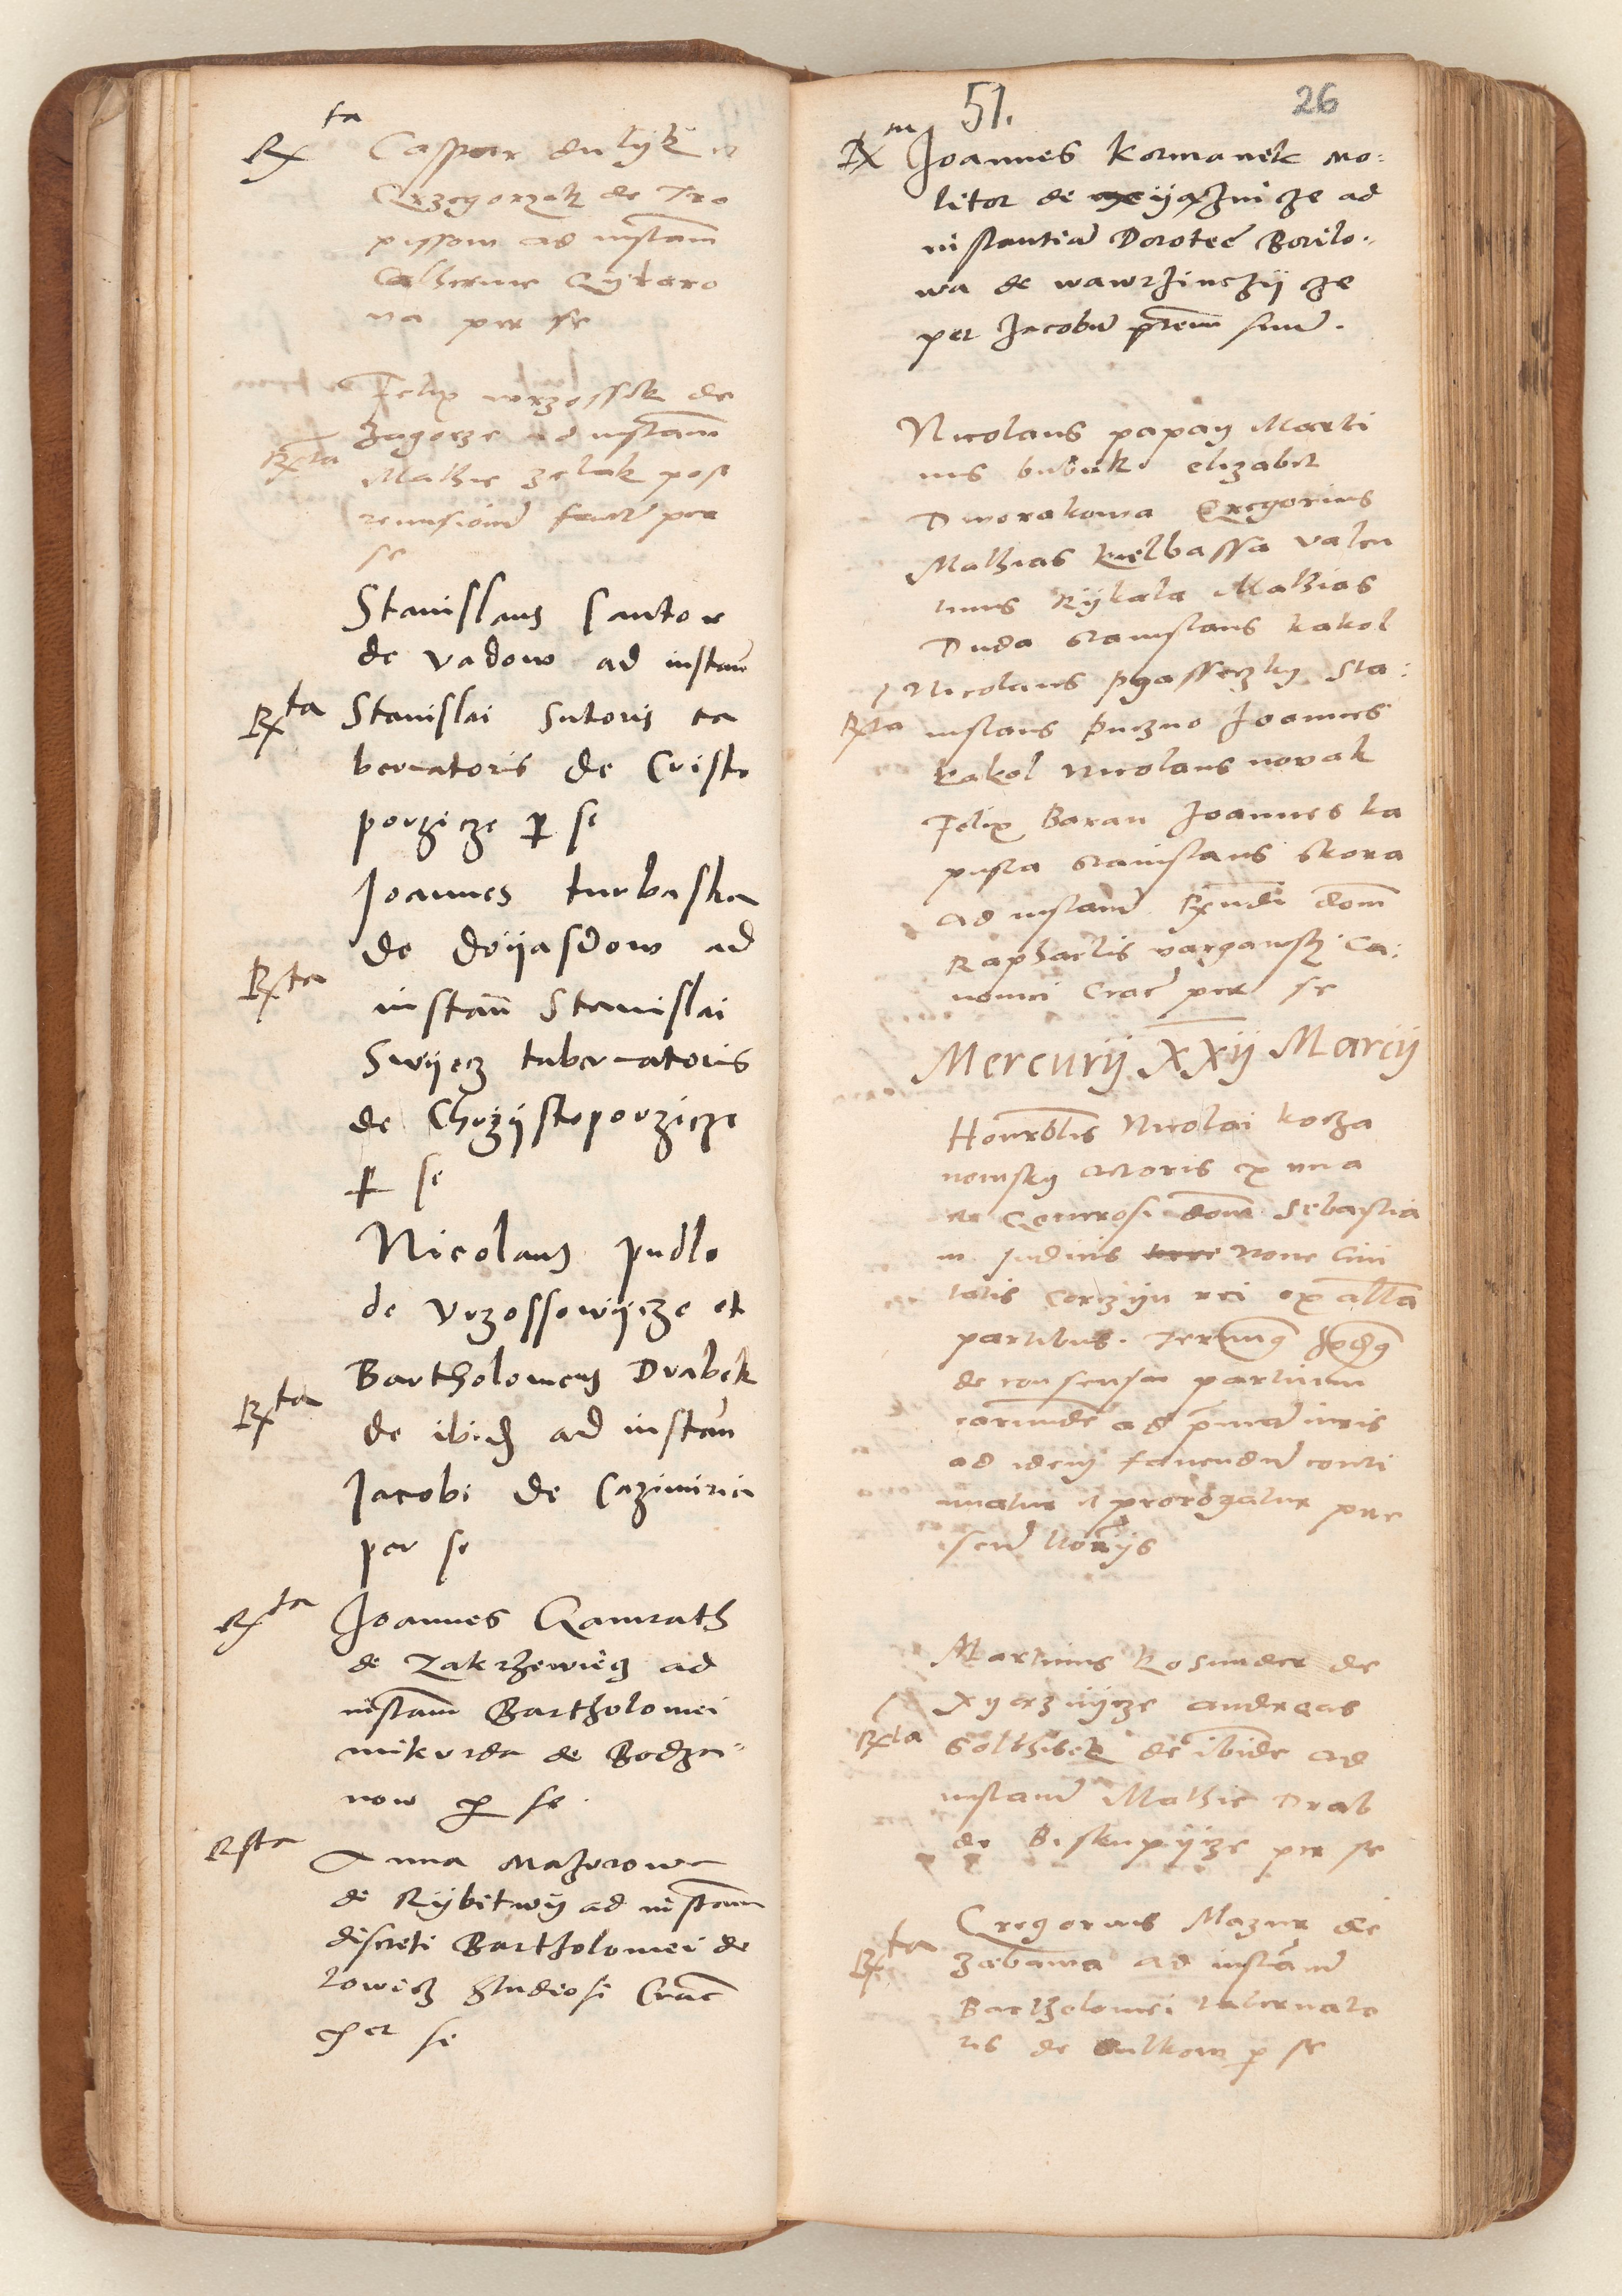 Rta
Caspar dulyk
Grzegorzek de Tro
pissow ad instam
Catherine Gykaro
na per se
Felix wrzossek de
Zagorze ad instam
Rta
Mathie zelak post
se
Stanislaus Cantor
de vadow ad instam
Rta Stanislai Sutoris ta
bernatoris de Cristo
porzicze p se
Joannes turbaska
de Dryasdow ad
Rta
instan Stanislai
Swyecz tabernatoris
de Chrzystoporzicze
p se
Nicolaus pudlo
de Vrzossowycze et
Bartholomeus Drabek
Rta
de ibid ad instan
Jacobi de Cazimiria
per se
Rta Joannes Gamrath
de Zakrzewiecz ad
instam Bartholomei
mikurda de Bodza
now p se.
Rta
Anna Mazurowa
de Rybitwy ad instam
discreti Bartholomei de
lowicz studiosi Crac
per se
51.
26
Rm Joannes Kormanek Mo:
litor de yaznicze ad
instantia Dorotee Borilo:
wa de wawrzinczycze
per Jacobu prem suu.
Nicolaus papay Marti
nus bubuk elizabet
Dworakowa Gregorius
Mathias kielbassa valen
tinus Rykala Mathias
Duda stanislaus kakol
Nicolaus pyasseczky Sta:
Rta nislaus puczno Joannes
kakol Nicolaus novak
Felix Baran Joannes ka
pusta stanislaus skora
ad instam Rxndi domi
Raphaelis vargawsky Ca:
nonici Crac per se
Mercurij XXij Marcij
Honrblis Nicolai kocza
nowsky actoris ex una
et Generosi domi Sebastia
ni Judicis Nove Civi
tatis corzyn rei ex altra
partibus. Terminus
de consensu partium
earunde ad primu iuris
ad idem faciendu conti
nuatur et prorogatur pre
sen Notrijs
Martinus Kosunder de
Xyaznycze andreas
Rta
Solthisek de ibide ad
instam Mathie Drab
de Biskupycze per se
Gregorius Mazur de
Rta
Zabawa ad instam
Bartholomei tabernato
ris de wilkow p se